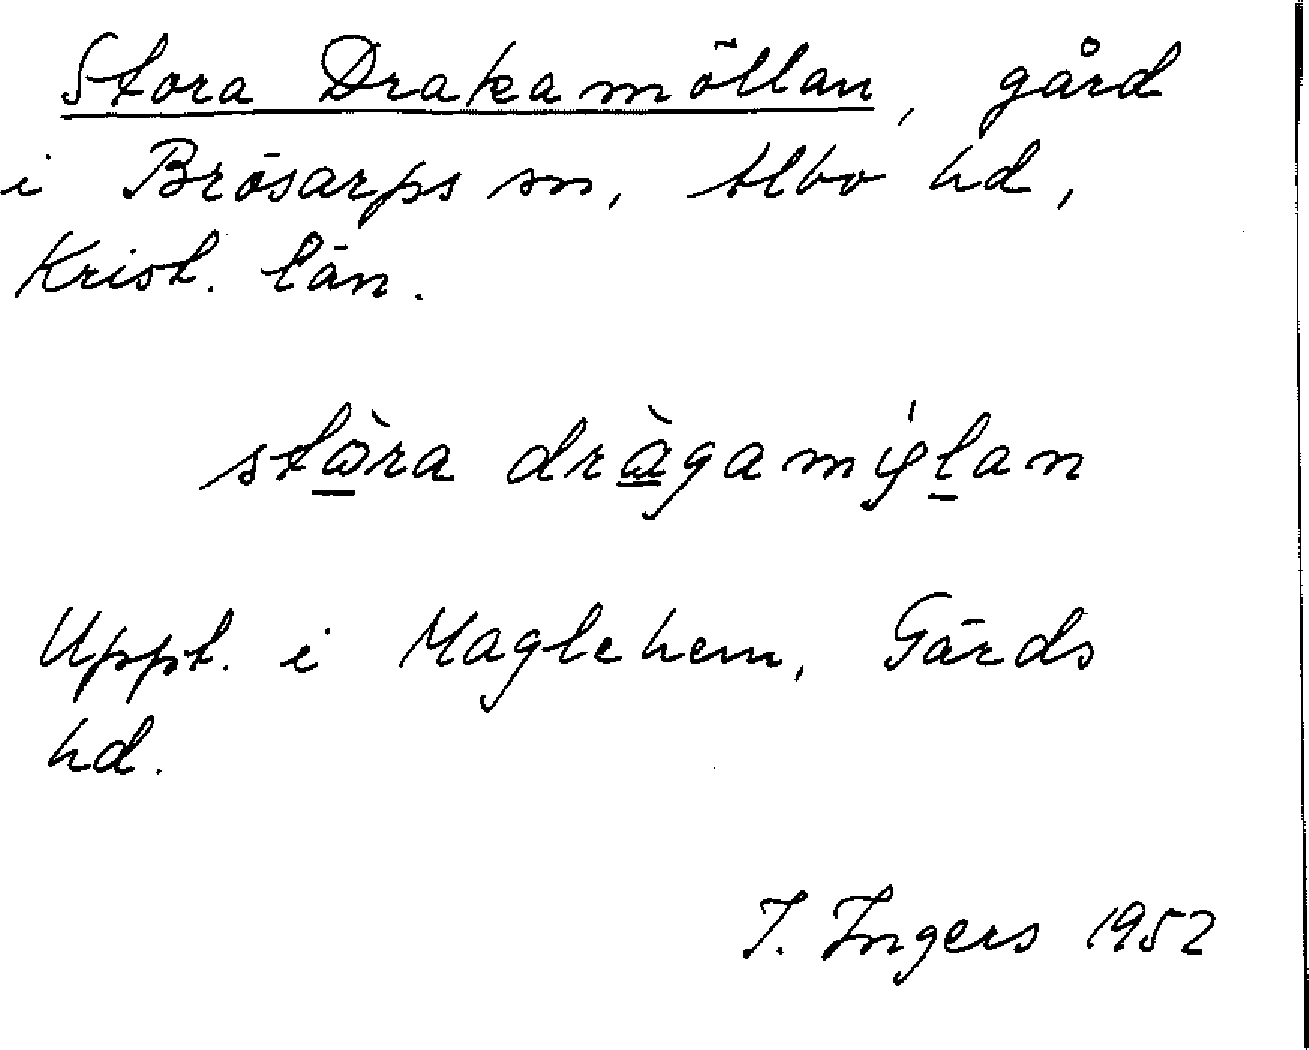 Stora Drakamöllan, gård
i Brösarps sn, Albo hd,
Krist. län.
Uppt. i Maglehem, Gärds
hd.
I. Ingers 1952